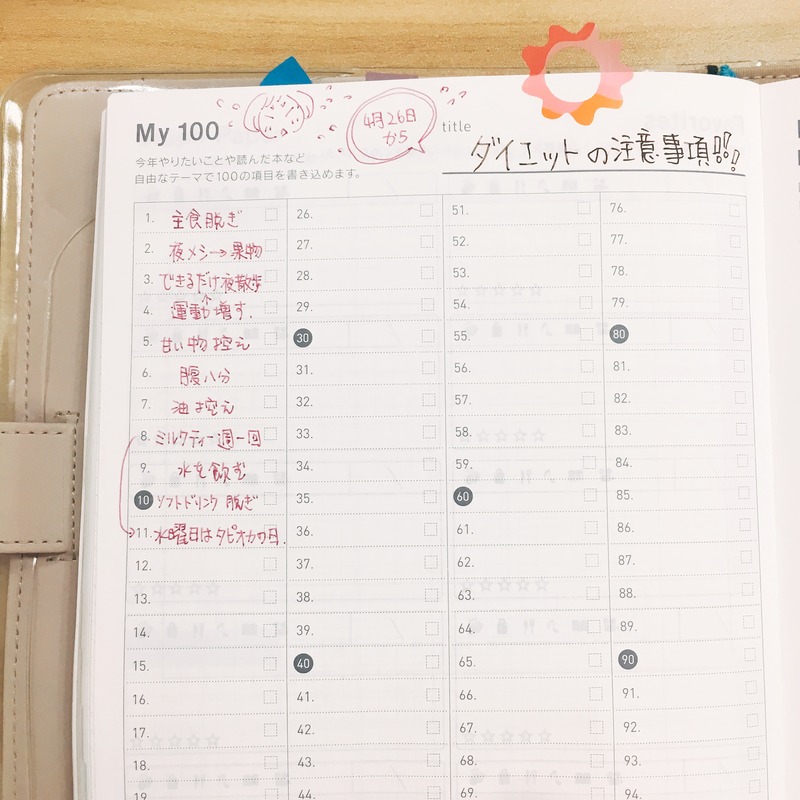 My 100
今年やりたいことや読んだ本など
自由なテーマで100の項目を書き込めます。
4月26日
から
title
ダイエットの注意事項!!!
1. 主食脱ぎ
2. 夜メシ→果物
3. できるだけ夜散歩
4. 運動増す.
5. 甘い物控え
6. 腹八分
7. 油控え
8. ミルクティー週一回
9. 水を飲む
10 ソフトドリンク 脱ぎ
11. 水曜日はタピオカの日.
12.
13.
14.
15.
16.
17.
18.
19
26.
27.
28.
29.
30
31.
32.
33.
34.
35.
36.
37.
38.
39.
40
41.
42.
43.
44.
51.
52.
53.
54.
55.
56.
57.
58.
59.
60
61.
62.
63.
64.
65.
66.
67.
68.
69.
76.
77.
78.
79.
80
81.
82.
83.
84.
85.
86.
87.
88.
89.
90
91.
92.
93.
94.